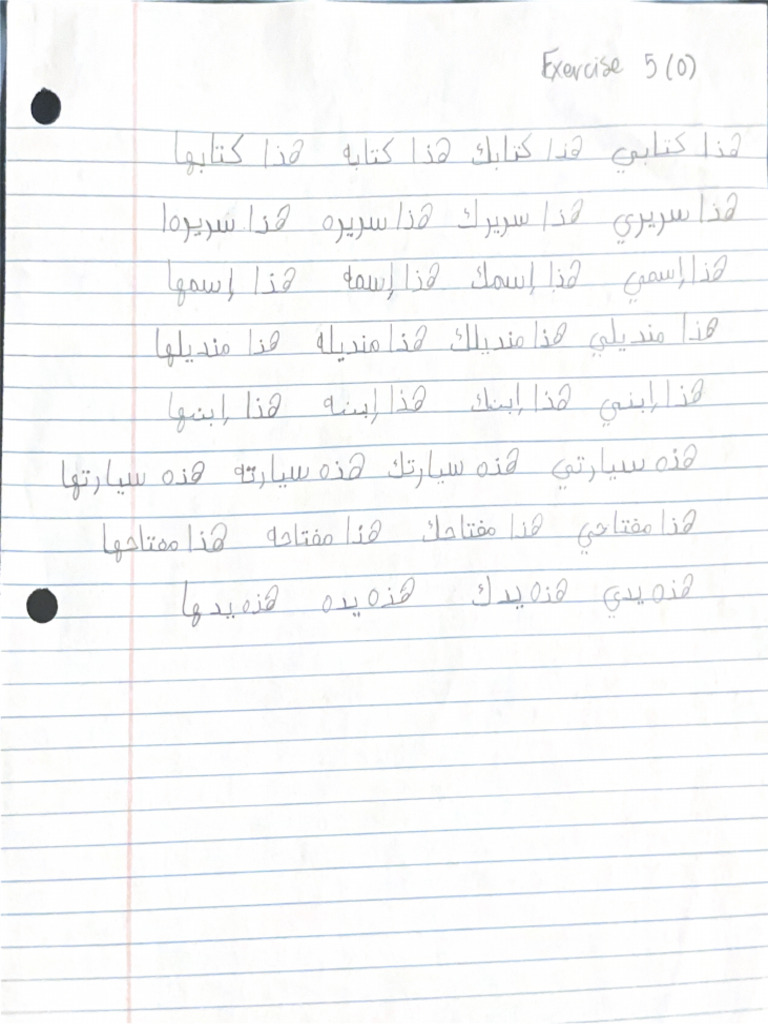 Exercise 5 (0)
هذا كتابي هذا كتابك هذا كتابه هذا كتابها
هذا سريري هذا سريرك هذا سريره هذا سريرها
هذا إسمي هذا إسمك هذا إسمه هذا إسمها
هذا منديلي هذا منديلك هذا منديله هذا منديلها
هذا إبني هذا إبنك هذا إبنه هذا إبنها
هذه سيارتي هذه سيارتك هذه سيارته هذه سيارتها
هذا مفتاحي هذا مفتاحك هذا مفتاحه هذا مفتاحها
هذه يدي هذه يدك هذه يده هذه يدها